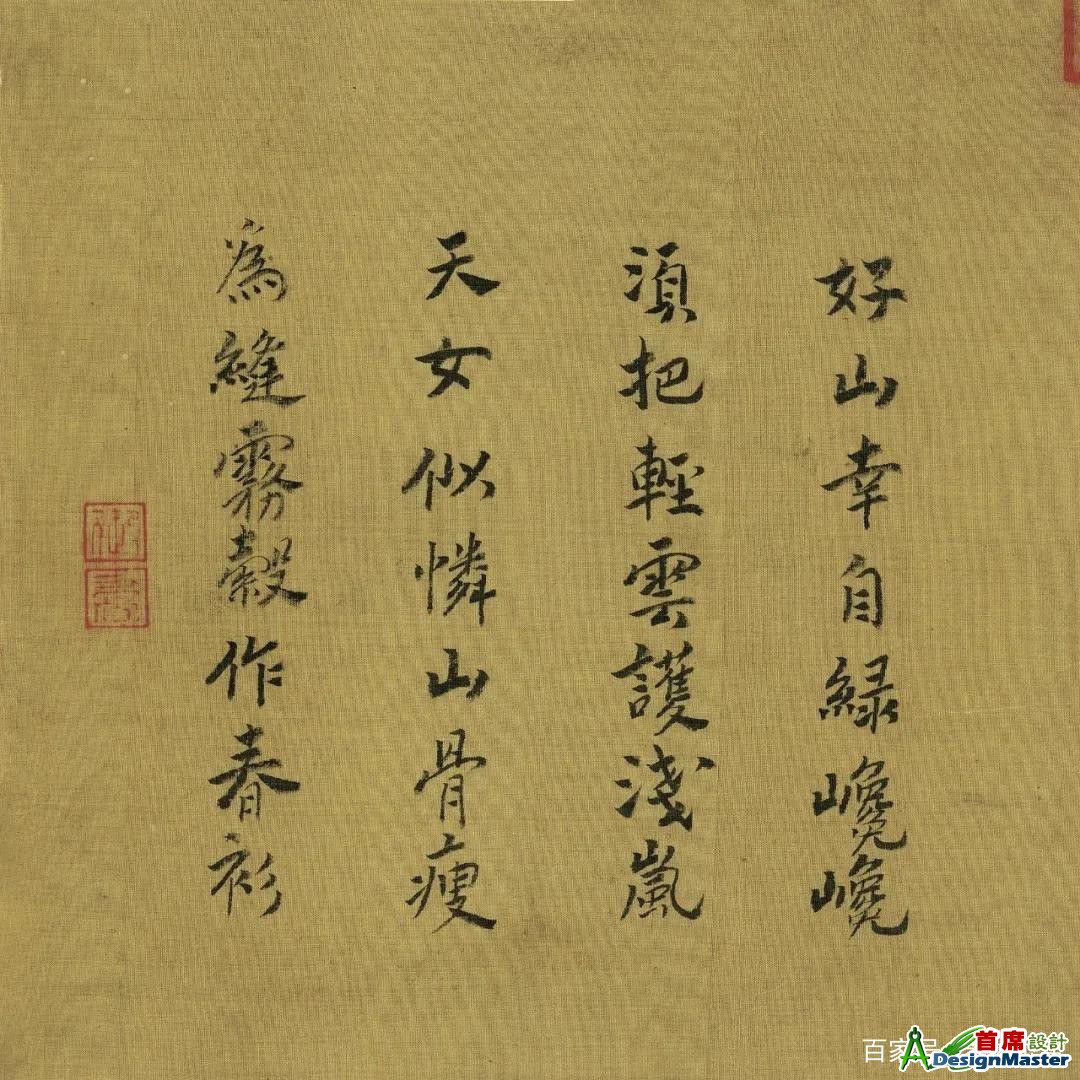 好山幸自綠巉巉
須把輕雲護淺嵐
天女似憐山骨瘦
為縫霧縠作春衫
御書
百家号
首席設計
ADesignMaster